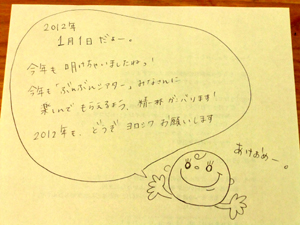 2012年
1月1日だぁー。
今年も明けちゃいましたねっ!
今年も「ぶんぶんシアター」みなさんに
楽しんでもらえるよう、精一杯がんばります!
2012年も、どうぞヨロシクお願いします
あけおめー。